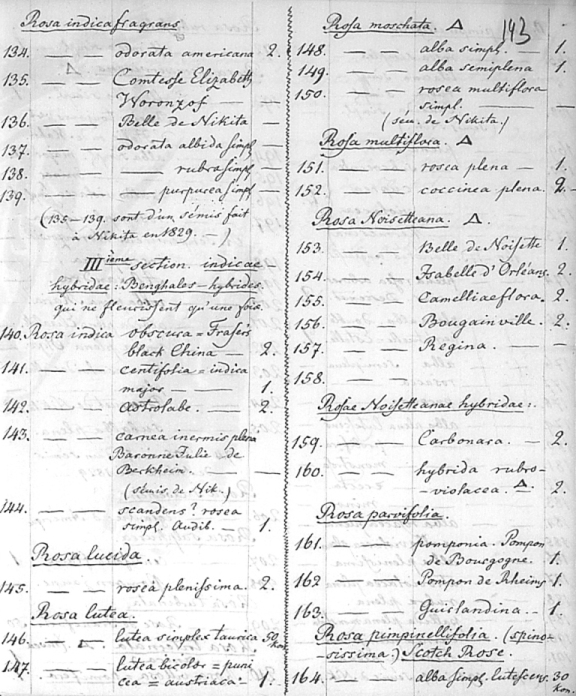 Rosa indica fragrans
134. — — odorata americana 2.
135. — — Comtesse Elizabeth
Woronzof —
136. — — Belle de Nikita —
137. — — odorata albida simpl —
138. — — — rubra simpl —
139. — — — purpurea simpl —
(135–139. sont d'un sémis fait
à Nikita en 1829. —)
IIIième section. indicae
hybridae: Benghales-hybrides,
qui ne fleurissent qu'une fois.
140. Rosa indica obscura = Frasers
black China — 2.
141. — — centifolia = indica
major — 1.
142. — — astrolabe. — 2.
143. — — carnea inermis plena
Baronne Julie de
Berkheim. —
(sémis. de Nik.)
144. — — scandens? rosea
simpl. Audib. — 1.
Rosa lucida.
145. — — rosea plenissima. 2.
Rosa lutea.
146. — Δ — lutea simplex taurica 50
kop.
147. — — lutea bicolor = puni
cea = austriaca. 1.
143
Rosa moschata. Δ
148. — — alba simpl. — 1.
149. — — alba semiplena 1.
150. — — rosea multiflora
simpl. —
(sém. de Nikita.)
Rosa multiflora. Δ
151. — — rosea plena — 1.
152. — — coccinea plena. 2.
Rosa Noisetteana. Δ.
153. — — Belle de Noisette 1.
154. — — Isabelle d'Orléans. 2.
155. — — Camelliaeflora. 2.
156. — — Bougainville. 2.
157. — — Regina. —
158. — —
Rosae Noisetteanae hybridae:
159. — — Carbonara. — 2.
160. — — hybrida rubro-
violacea. Δ 2.
Rosa parvifolia.
161. — — pomponia. Pompon
de Bourgogne. 1.
162 — — Pompon de Rheims 1.
163. — — Guislandina. — 1.
Rosa pimpinellifolia. (spino-
sissima.) Scotch Rose.
164. — — alba simpl. lutescens. 30
kop.